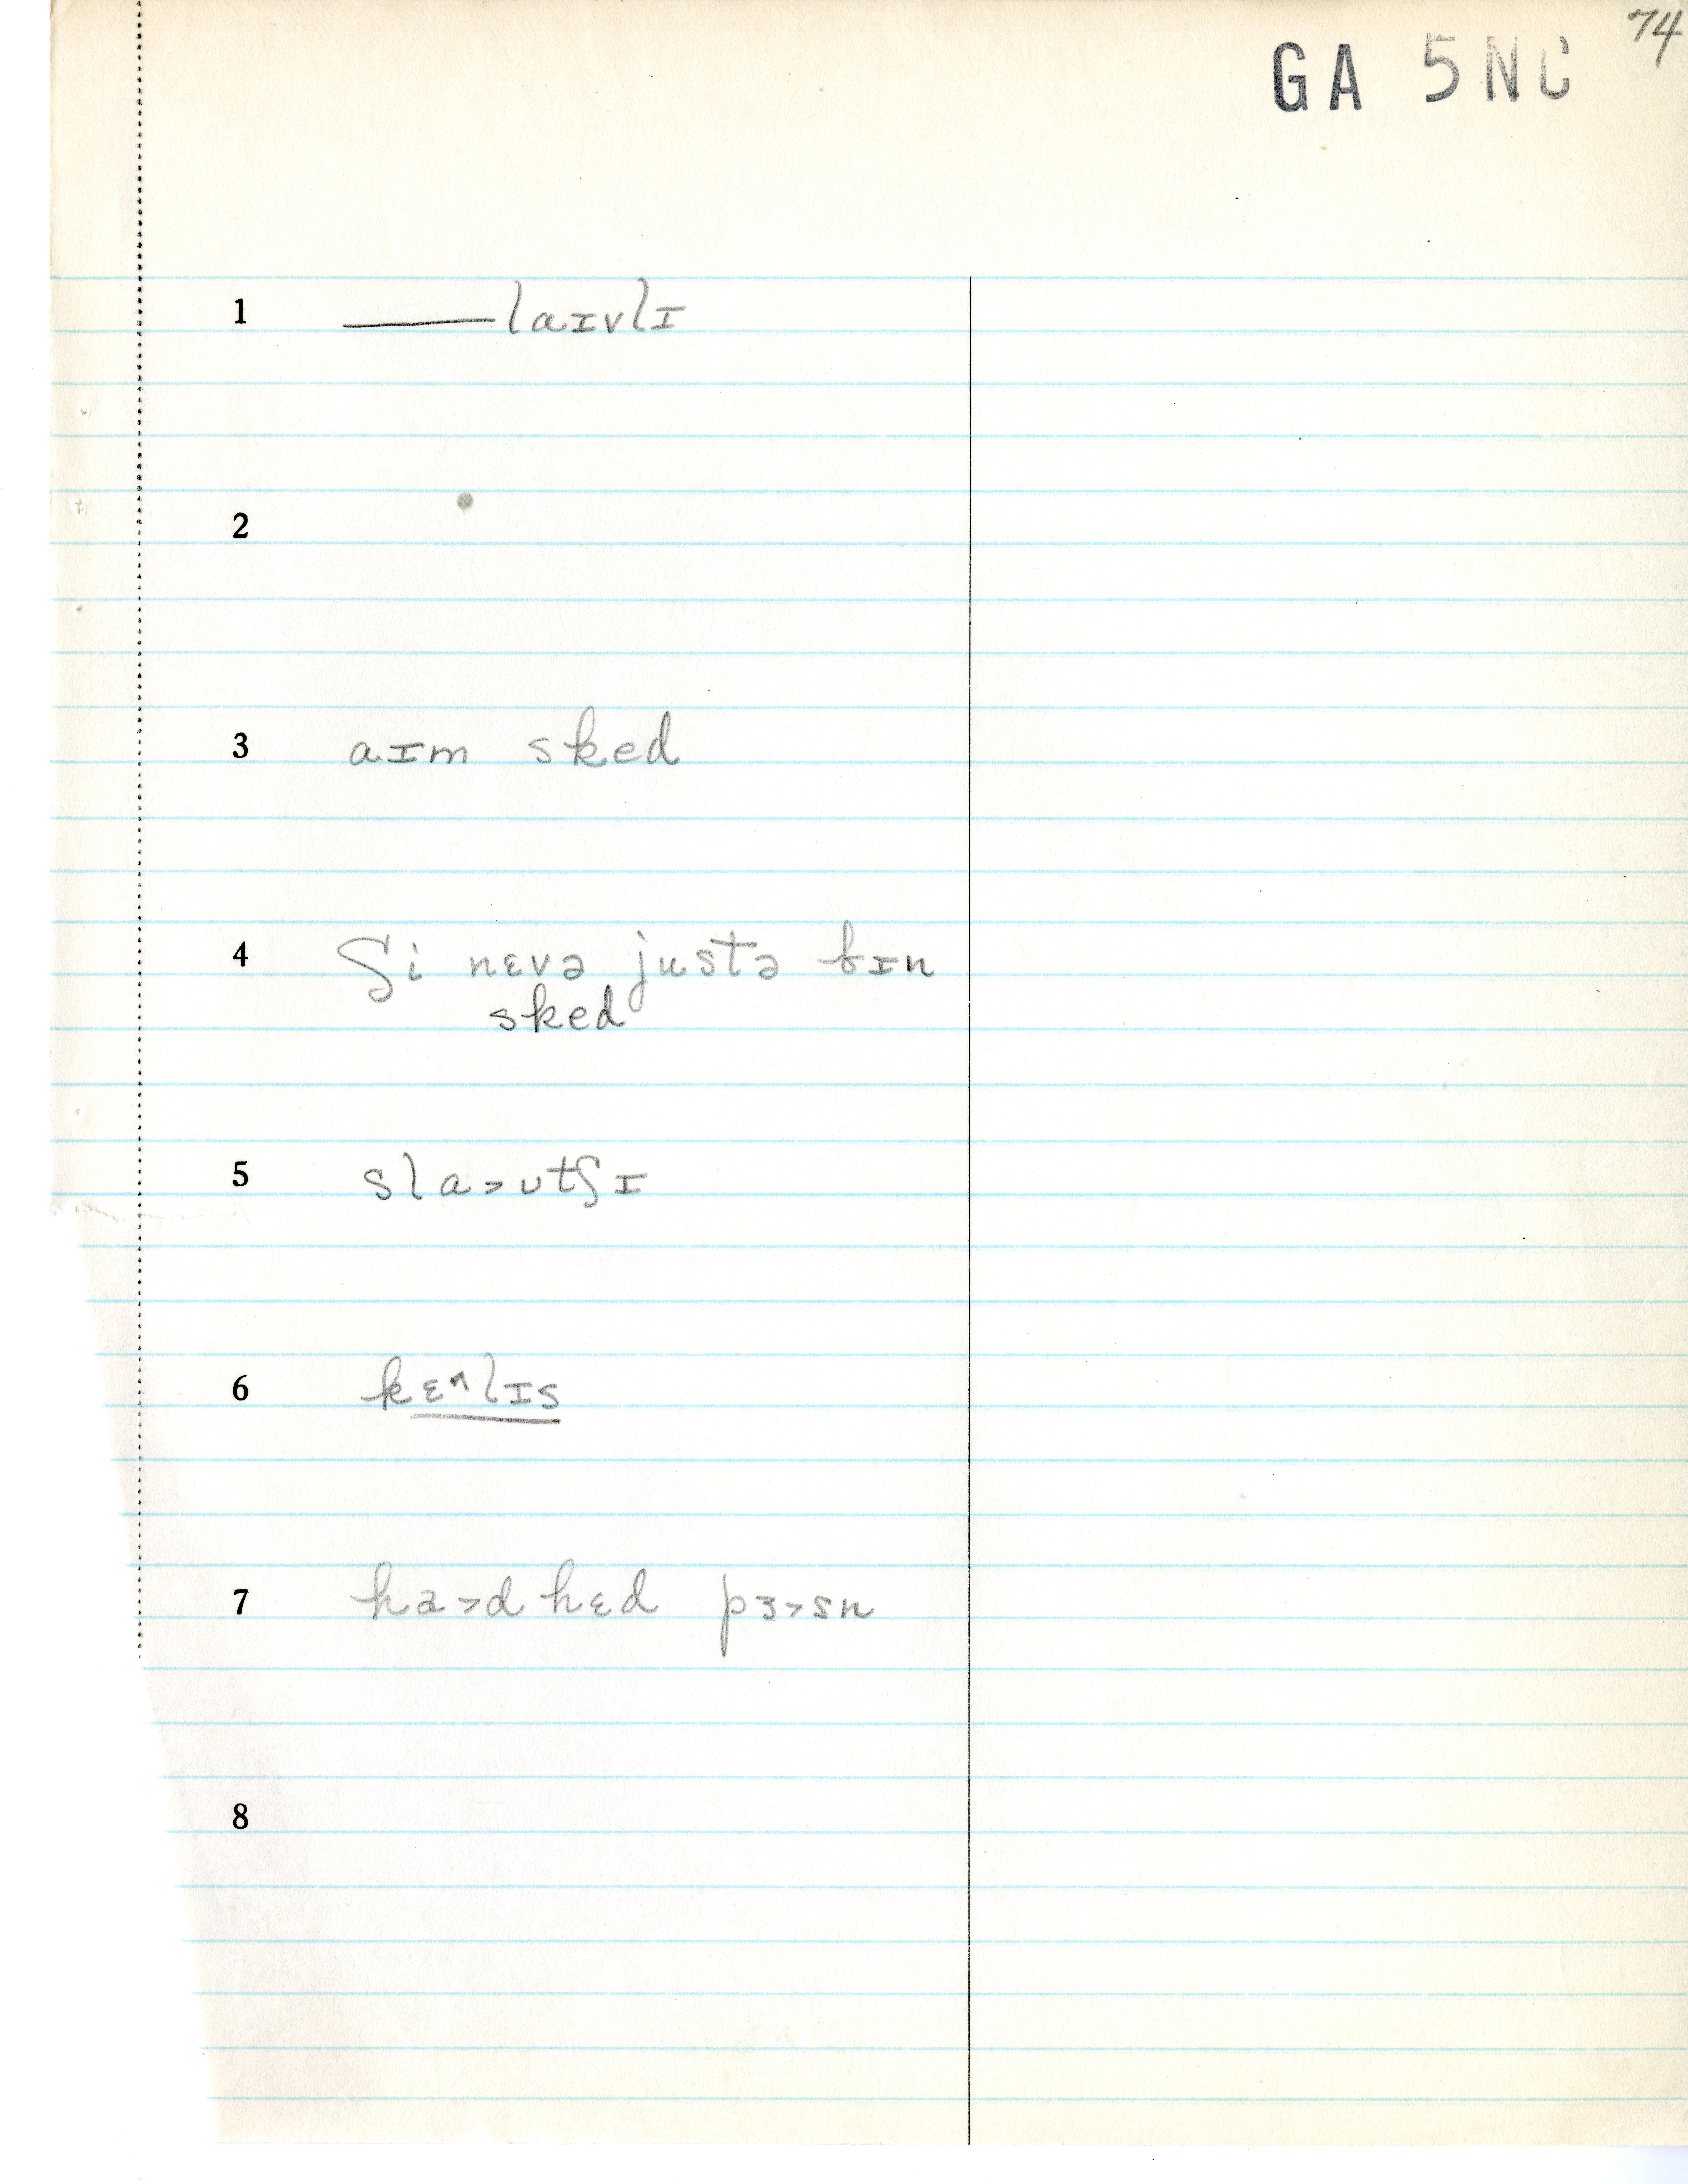 74
GA 5NC
1 ——— laɪvlɪ
2
3 aɪm sked
4 ʃi nɛvə justə bɪn
sked
5 sla>ʊtʃɪ
6 kɛ^lɪs
7 ha>d hɛd pɜ>sn
8